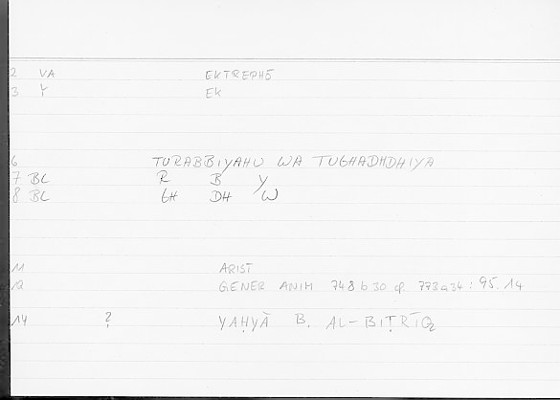 2 VA EKTREPHŌ
3 Y EK
6 TURABBIYAHU WA TUGHADHDHIYA
7 BL R B Y
8 BL GH DH W
11 ARIST
12 GENER ANIM 748 b 30 cp 773a34 : 95.14
14 ? YAḤYĀ B. AL-BIṬRĪQ